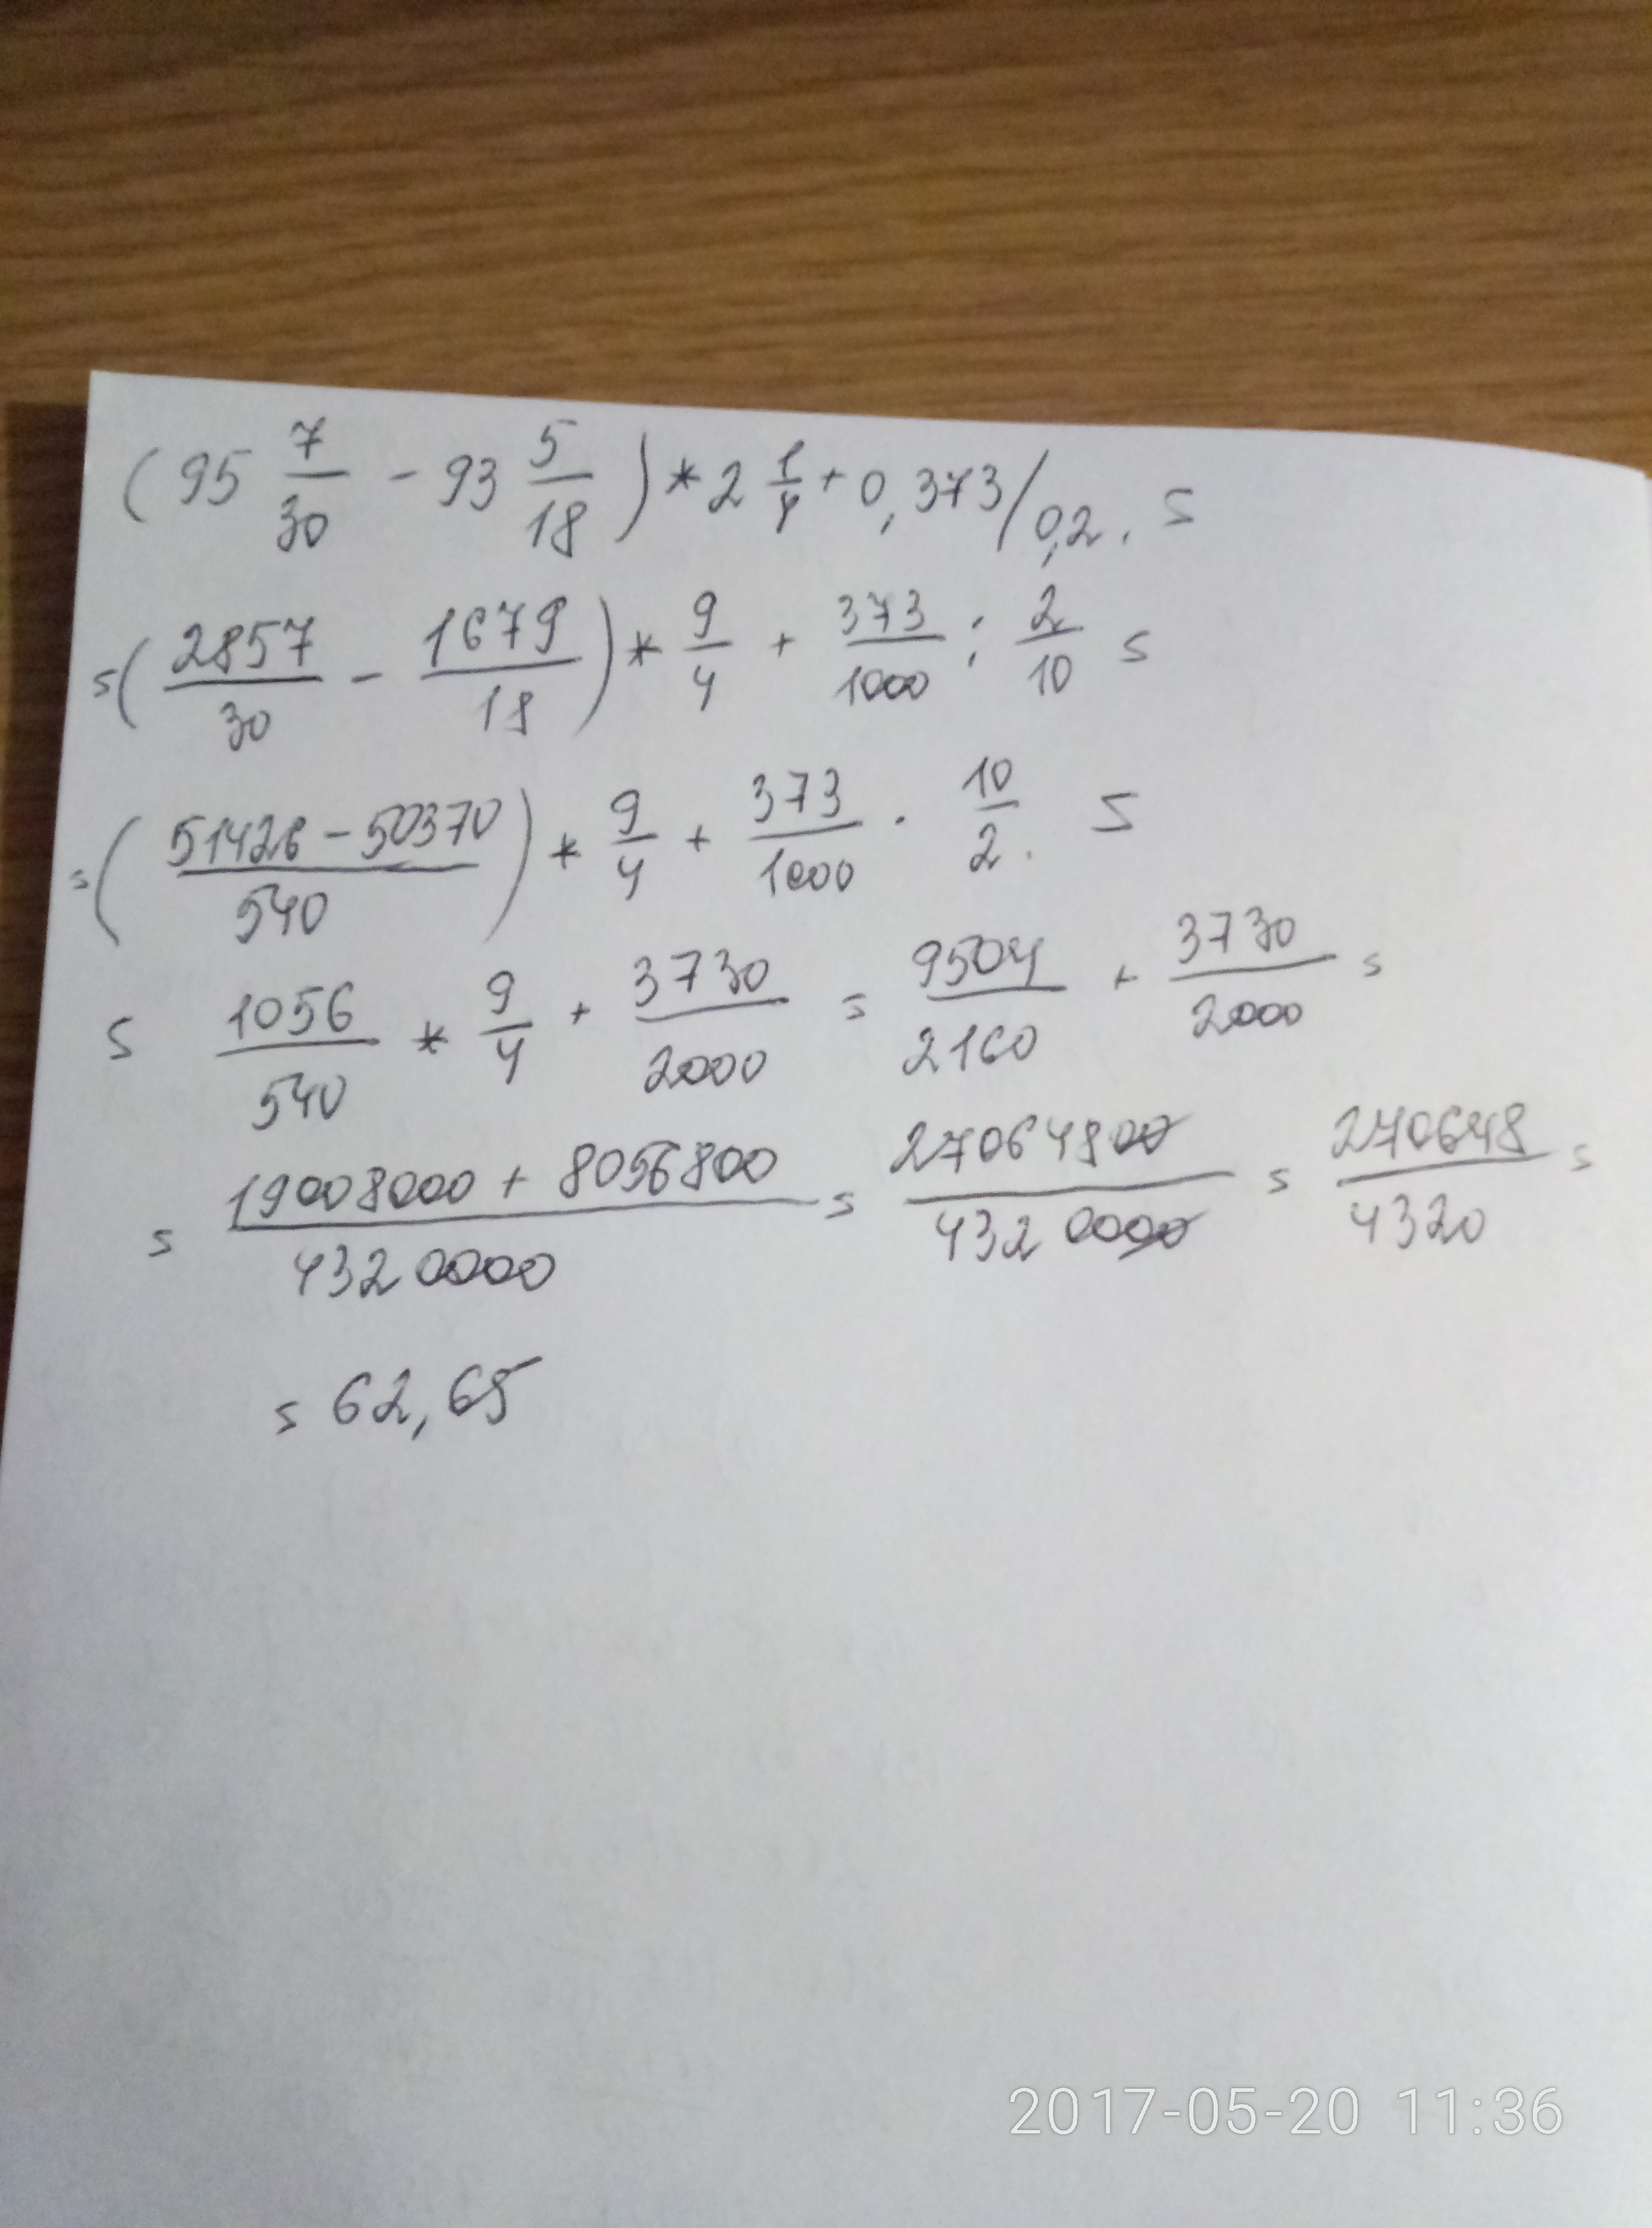 (95 7/30 - 93 5/18) * 2 1/4 + 0,373/0,2. =
= (2857/30 - 1679/18) * 9/4 + 373/1000 : 2/10 =
= (51426 - 50370/540) * 9/4 + 373/1000 · 10/2. =
= 1056/540 * 9/4 + 3730/2000 = 9504/2160 + 3730/2000 =
= 19008000 + 8056800/4320000 = 27064800/4320000 = 270648/4320 =
= 62,65
2017-05-20 11:36